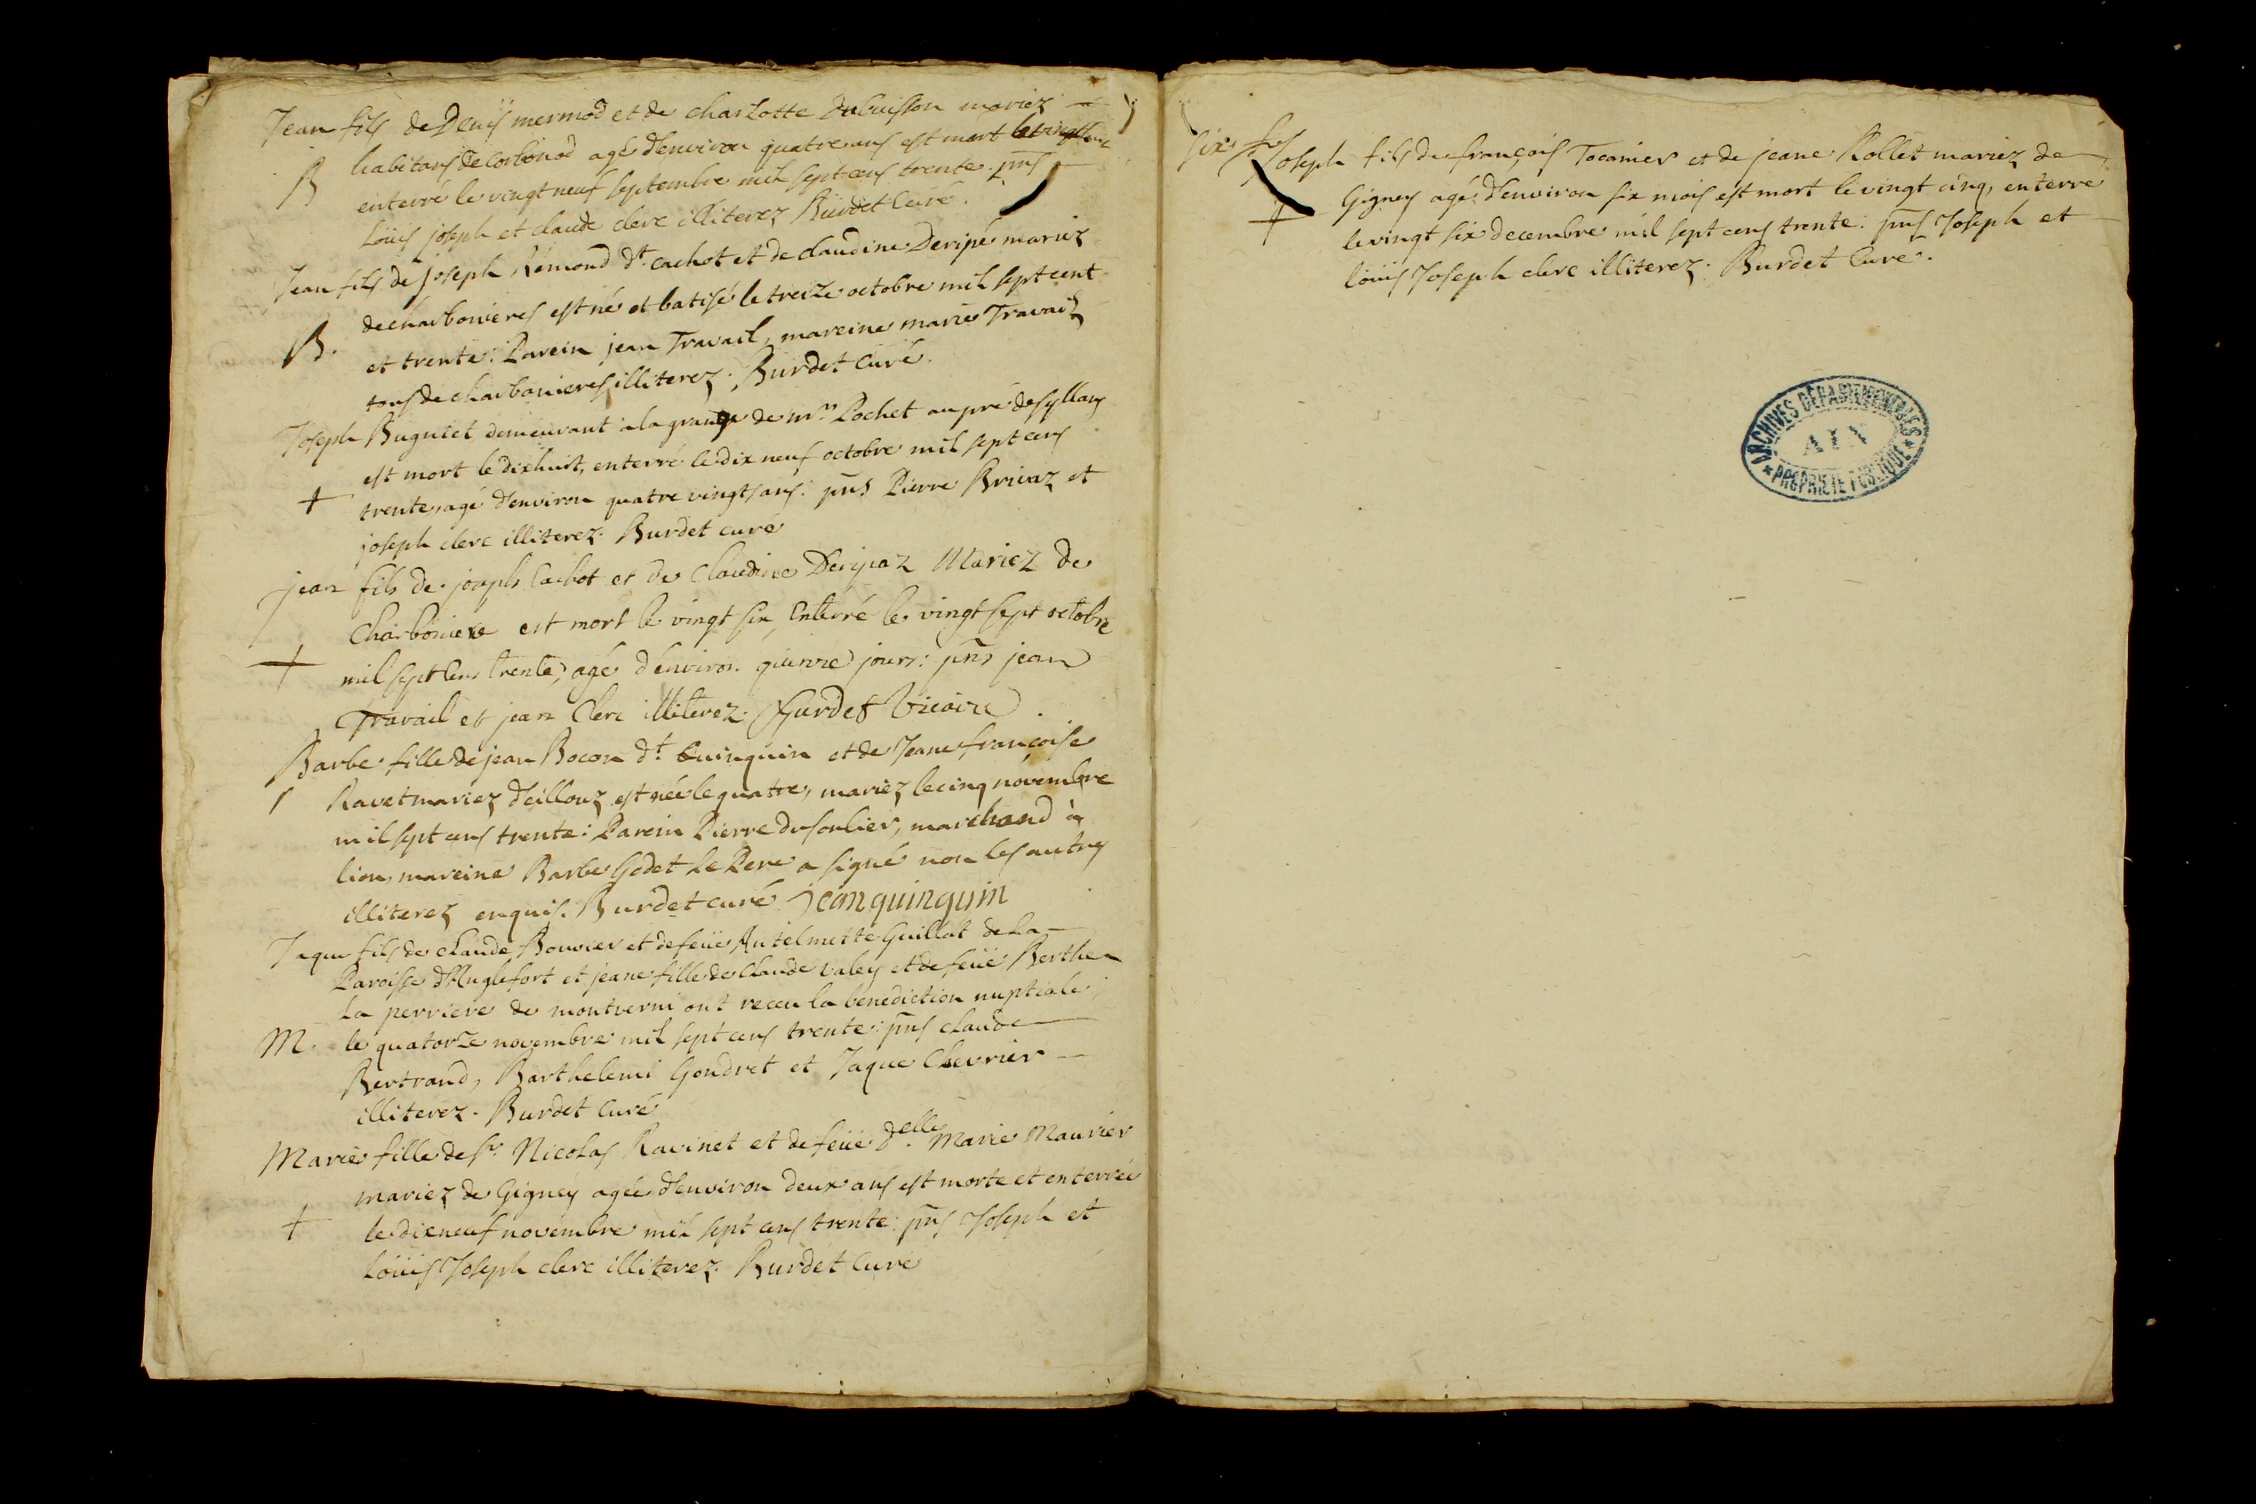 Jean fils de Denis mermod et de charlotte Dubuisson mariez
B habitans de Corbonod agé d'environ quatre ans est mort
enterré le vingt neuf septembre mil sept cens trente. pns
Loüis joseph et claude clerc illiterez Burdet Curé.
Jean fils de joseph Rémond dt. cachot et de claudine Deripé mariez
de charbonieres est né et batisé le treize octobre mil sept cent
B. et trente: Parein jean Travail, mareine marie Travail
tous de charbonieres illiterez. Burdet Curé.
Joseph Buguiet demeurant a la grange de mrs Pochet au pré de syllans
est mort le dixhuit, enterré le dix neuf octobre mil sept cens
+ trente, agé d'environ quatre vingts ans: pns Pierre Brivaz et
joseph clerc illiterez. Burdet curé
jean fils de joseph Cachot et de Claudine Deripaz Mariez de
Charboniere est mort le vingt six, Enterré le vingt sept octobre
+ mil sept Cens trente, agé d'environ quinze jours: pns jean
Travail et jean Clerc illiterez. Vicaire
Barbe fille de jean Bocon dt. Quinquin et de Jeane françoise
Ravet mariez d'eillouz est née le quatre, mariez le cinq novembre
mil sept cens trente: Parein Pierre dusoulier, marchand à
lion, mareine Barbe Godet Le Pere a signé non les autres
illiterez enquis. Burdet curé jean quinquin
Jaque fils de claude Bouvier et de feüe Antelmette Guillot de La
Paroisse d'Anglefort et jeane fille de Claude Valey et de feüe Berthe
La perriere de montverni ont receu la benediction nuptiale
M. le quatorze novembre mil sept cens trente: pns claude
Bertrand, Barthelemi Gondret et Jaque Chevrier
illiterez. Burdet Curé
Marie fille de sr. Nicolas Ravinet et de feüe Delle. Marie Maurier
mariez de Gigney agée d'environ deux ans est morte et enterrée
+ le dixneuf novembre mil sept cens trente: pns Joseph et
Loüis Joseph clerc illiterez. Burdet Curé
Joseph fils de françois Tocanier et de jeane Rollet mariez de
Gigney agé d'environ six mois est mort le vingt cinq, enterré
+ le vingt six decembre mil sept cens trente: pns Joseph et
loüis Joseph clerc illiterez. Burdet Curé.
ARCHIVES DÉPARTEMENTALES
AIN
* PROPRIÉTÉ PUBLIQUE *